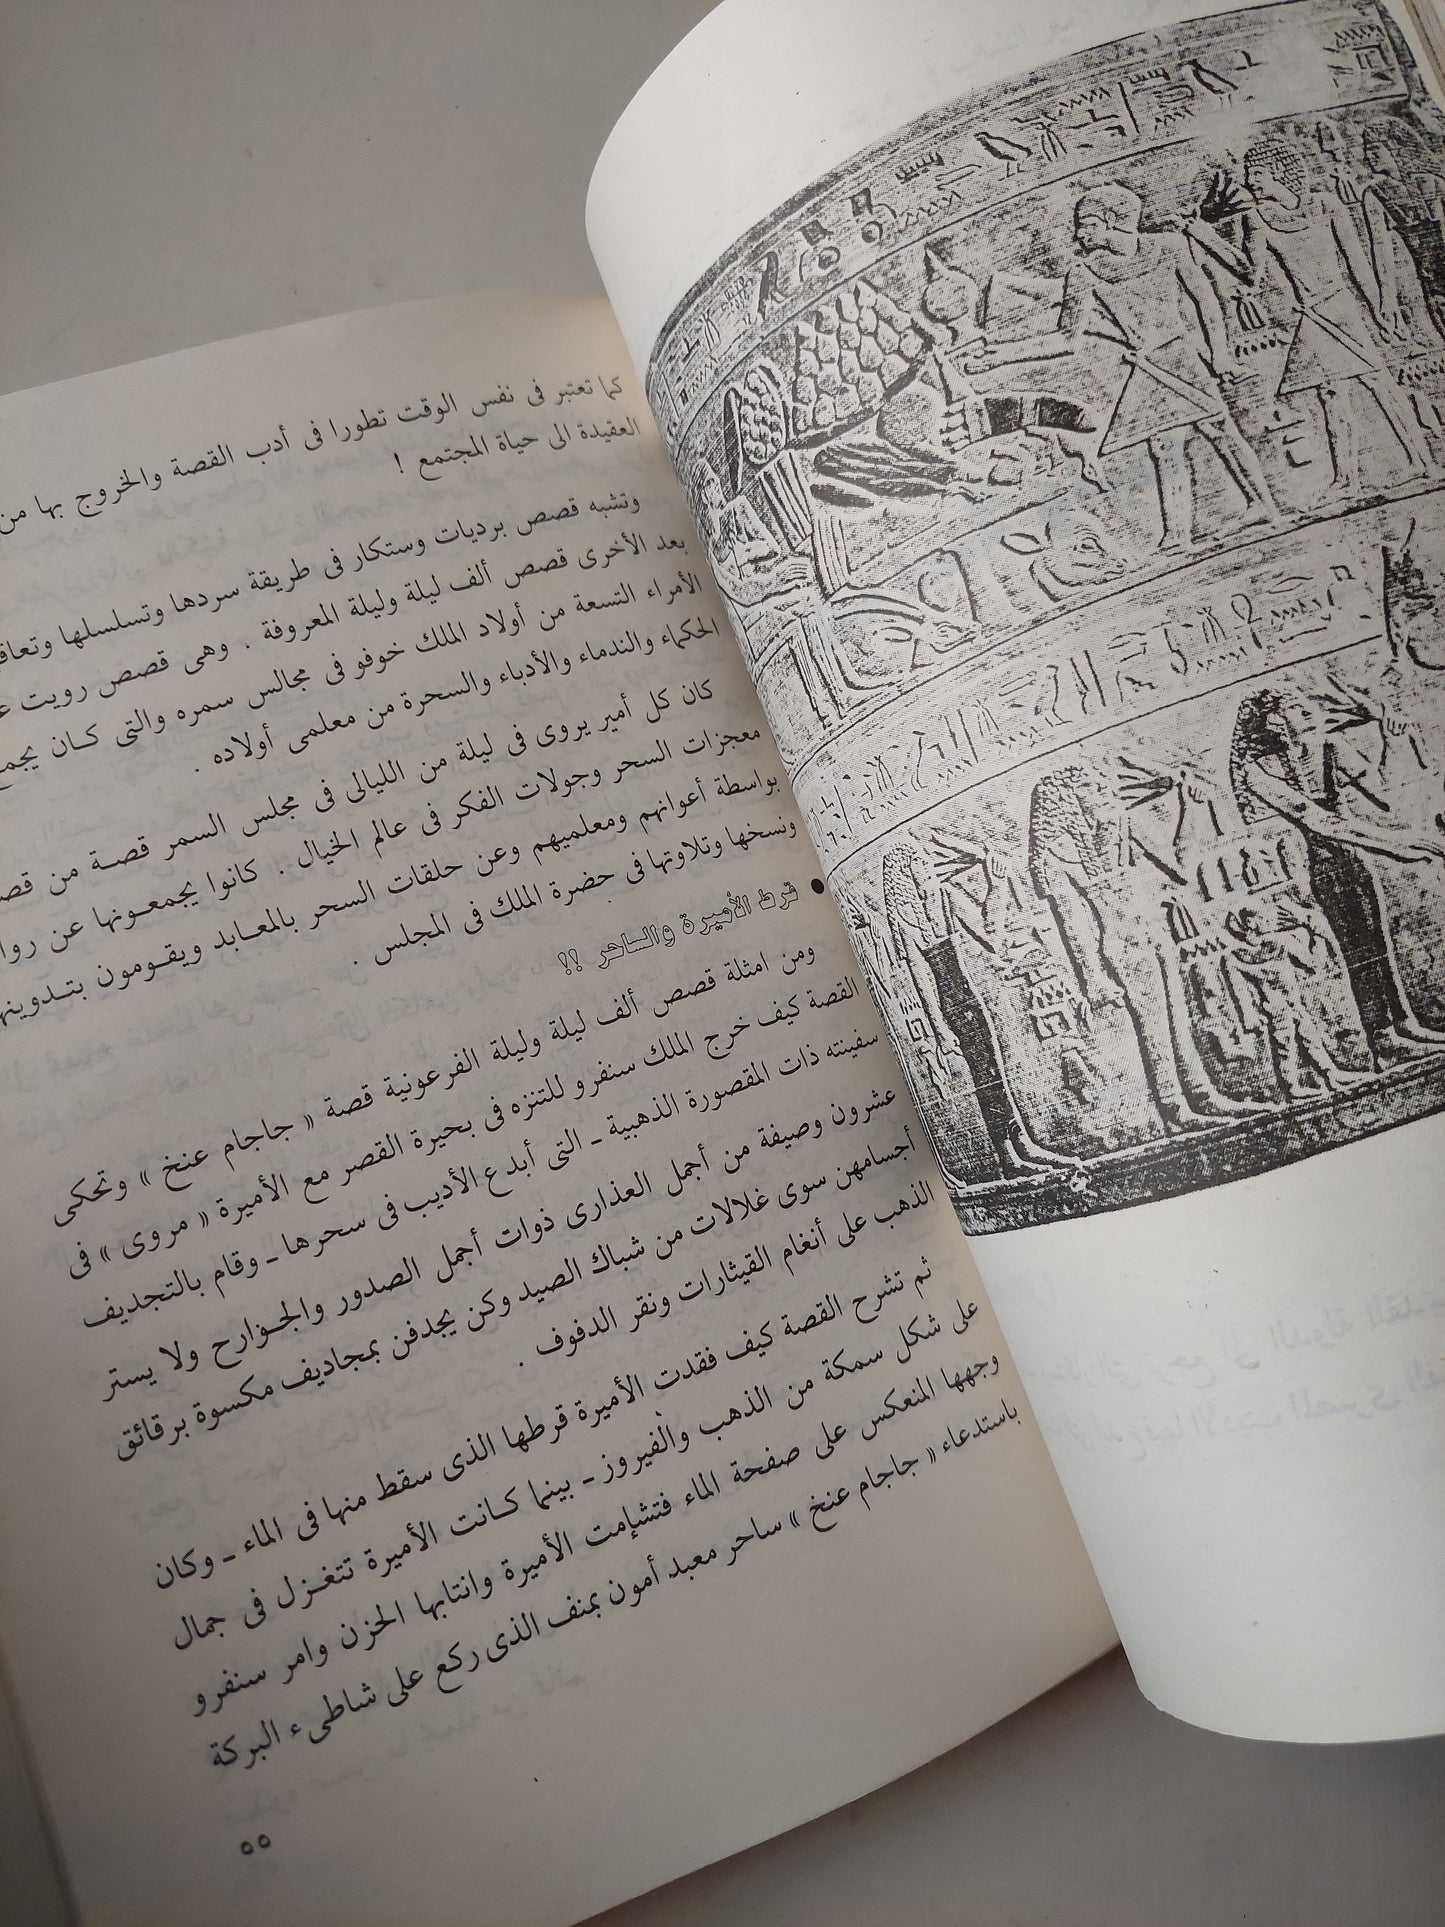 كما تعتبر فى نفس الوقت تطورا فى أدب القصة والخروج بها من
العقيدة الى حياة المجتمع !
وتشبه قصص برديات وستكار فى طريقة سردها وتسلسلها
بعد الأخرى قصص ألف ليلة وليلة المعروفة . وهى قصص رويت
الأمراء التسعة من أولاد الملك خوفو فى مجالس سمره والتى كان
الحكماء والندماء والأدباء والسحرة من معلمى أولاده .
كان كل أمير يروى فى ليلة من الليالى فى مجلس السمر قصة من
معجزات السحر وجولات الفكر فى عالم الخيال . كانوا يجمعونها عن
بواسطة أعوانهم ومعلميهم وعن حلقات السحر بالمعابد ويقومون
ونسخها وتلاوتها فى حضرة الملك فى المجلس .
● قرط الأميرة والساحر !!
ومن امثلة قصص ألف ليلة وليلة الفرعونية قصة « جاجام عنخ » وتحكى
القصة كيف خرج الملك سنفرو للتنزه فى بحيرة القصر مع الأميرة « مروى » فى
سفينته ذات المقصورة الذهبية ـ التى أبدع الأديب فى سحرها ـ وقام بالتجديف
عشرون وصيفة من أجمل العذارى ذوات أجمل الصدور والجوارح ولا يستر
أجسامهن سوى غلالات من شباك الصيد وكن يجدفن بمجاديف مكسوة برقائق
الذهب على أنغام القيثارات ونقر الدفوف .
ثم تشرح القصة كيف فقدت الأميرة قرطها الذى سقط منها فى الماء ـ وكان
على شكل سمكة من الذهب والفيروز ـ بينما كانت الأميرة تتغزل فى جمال
وجهها المنعكس على صفحة الماء فتشإمت الأميرة وانتابها الحزن وامر سنفرو
باستدعاء « جاجام عنخ » ساحر معبد أمون بمنف الذى ركع على شاطىء البركة
٥٥